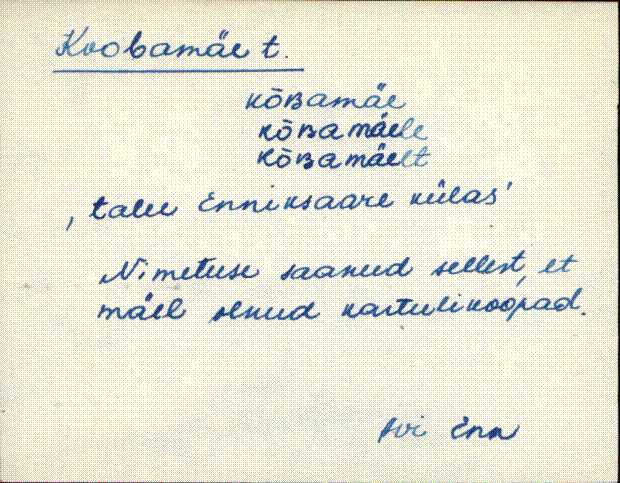 Koobamäe t.
kōʙamäe
kōʙamäele
kōʙamäelt
, talu Enniksaare külas'
Nimetuse saanud sellest, et
mäel olnud kartulikoopad.
Enn